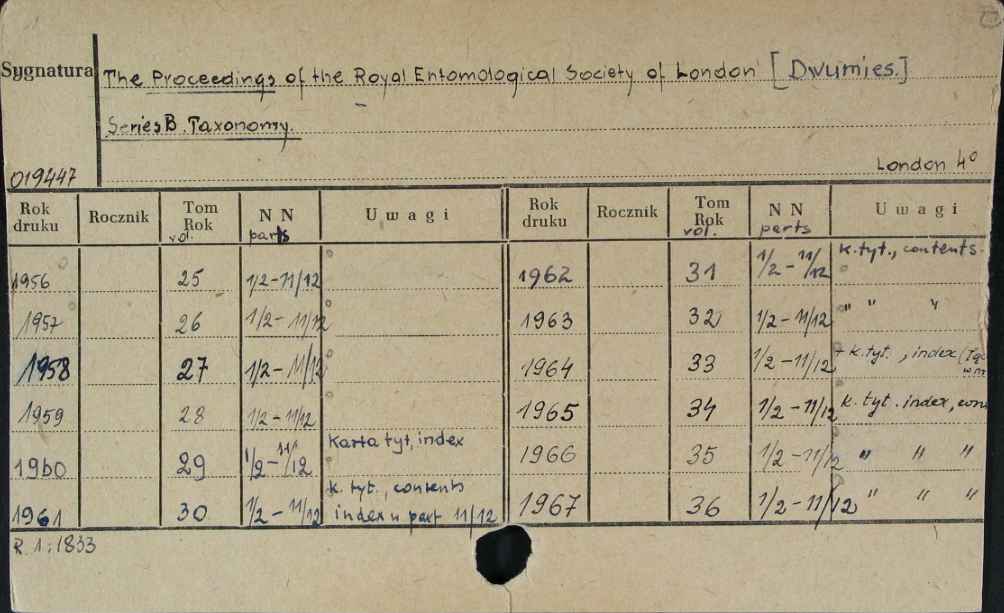 Sygnatura The Proceedings of the Royal Entomological Society of London [Dwumies.]
Series B. Taxonomy.
London 4º
019447
Rok druku Rocznik Tom Rok vol. N N parts Uwagi Rok druku Rocznik Tom Rok vol. N N parts Uwagi
1956 25 1/2-11/12 1962 31 1/2-11/12 k. tyt., contents
1957 26 1/2-11/12 1963 32 1/2-11/12 " " "
1958 27 1/2-11/12 1964 33 1/2-11/12 + k. tyt., index
1959 28 1/2-11/12 1965 34 1/2-11/12 k. tyt. index,
1960 29 1/2-11/12 Karta tyt, index 1966 35 1/2-11/12 " " "
1961 30 1/2-11/12 k. tyt., contents
index w part 11/12 1967 36 1/2-11/12 " " "
R. 1:1833